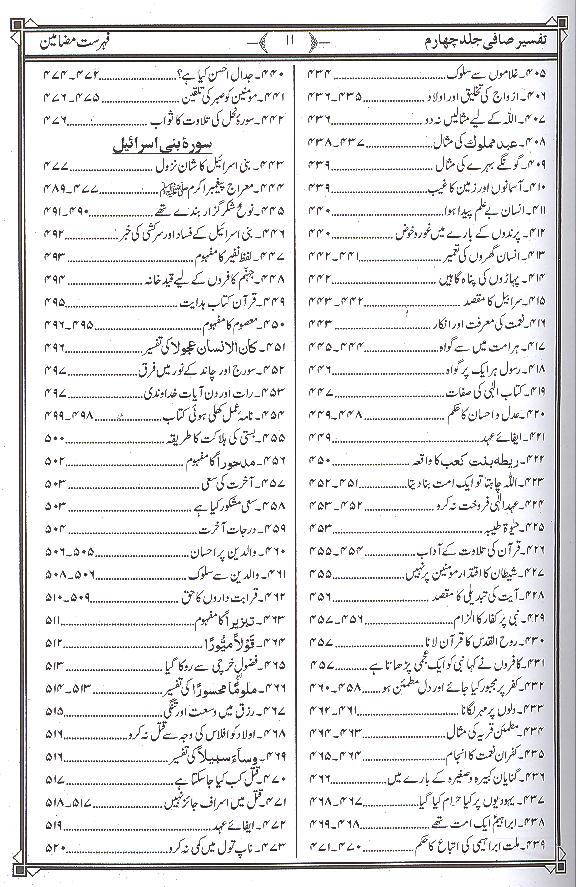 تفسیر صافی جلد چہارم
۱۱
فہرست مضامین
۴۰۵۔ غلاموں سے سلوک ۴۳۴
۴۰۶۔ ازواج کی تخلیق اور اولاد ۴۳۵۔۴۳۶
۴۰۷۔ اللہ کے لیے مثالیں نہ دو ۴۳۶
۴۰۸۔ عبد مملوك کی مثال ۴۳۷۔۴۳۸
۴۰۹۔ گونگے بہرے کی مثال ۴۳۹
۴۱۰۔ آسمانوں اور زمین کا غیب ۴۳۹
۴۱۱۔ انسان بے علم پیدا ہوا ۴۴۰
۴۱۲۔ پرندوں کے بارے میں غور و خوض ۴۴۰
۴۱۳۔ انسان گھروں کی تعمیر ۴۴۱۔۴۴۲
۴۱۴۔ پہاڑوں کی پناہ گاہیں ۴۴۲
۴۱۵۔ سرابیل کا مقصد ۴۴۲۔۴۴۳
۴۱۶۔ نعمت کی معرفت اور انکار ۴۴۳
۴۱۷۔ ہر امت میں سے گواہ ۴۴۴۔۴۴۵
۴۱۸۔ رسول ہر ایک پر گواہ ۴۴۶
۴۱۹۔ کتاب الٰہی کی صفات ۴۴۷
۴۲۰۔ عدل و احسان کا حکم ۴۴۸۔۴۴۹
۴۲۱۔ ایفائے عہد ۴۴۹
۴۲۲۔ ریطہ بنت کعب کا واقعہ ۴۵۰
۴۲۳۔ اللہ چاہتا تو ایک امت بنا دیتا ۴۵۱۔۴۵۲
۴۲۴۔ عہد الٰہی فروخت نہ کرو ۴۵۲۔۴۵۳
۴۲۵۔ حیٰوۃ طیبہ ۴۵۳
۴۲۶۔ قرآن کی تلاوت کے آداب ۴۵۴۔۴۵۵
۴۲۷۔ شیطان کا اقتدار مومنین پر نہیں ۴۵۵
۴۲۸۔ آیت کی تبدیلی کا مقصد ۴۵۶
۴۲۹۔ نبی پر کفار کا الزام ۴۵۶۔۴۵۷
۴۳۰۔ روح القدس کا قرآن لانا ۴۵۷
۴۳۱۔ کافروں نے کہا نبی کو ایک عجمی پڑھاتا ہے ۴۵۷
۴۳۲۔ کفر پر مجبور کیا جائے اور دل مطمئن ہو ۴۵۸۔۴۶۰
۴۳۳۔ دلوں پر مہر لگانا ۴۶۱۔۴۶۲
۴۳۴۔ مطمئن قریہ کی مثال ۴۶۳۔۴۶۴
۴۳۵۔ کفران نعمت کا انجام ۴۶۴۔۴۶۵
۴۳۶۔ گناہان کبیرہ و صغیرہ کے بارے میں ۴۶۶
۴۳۷۔ یہودیوں پر کیا حرام کیا گیا ۴۶۷۔۴۶۸
۴۳۸۔ ابراہیمؑ ایک امت تھے ۴۶۸۔۴۶۹
۴۳۹۔ ملت ابراہیمی کی اتباع کا حکم ۴۷۰۔۴۷۱
۴۴۰۔ جدال احسن کیا ہے؟ ۴۷۲۔۴۷۴
۴۴۱۔ مومنین کو صبر کی تلقین ۴۷۵۔۴۷۶
۴۴۲۔ سورۂ نحل کی تلاوت کا ثواب ۴۷۶
سورۂ بنی اسرائیل
۴۴۳۔ بنی اسرائیل کا شان نزول ۴۷۷
۴۴۴۔ معراج پیغمبر اکرم ﷺ ۴۷۷۔۴۸۹
۴۴۵۔ نوحؑ شکر گزار بندے تھے ۴۹۰۔۴۹۱
۴۴۶۔ بنی اسرائیل کے فساد اور سرکشی کی خبر ۴۹۲
۴۴۷۔ لفظ نفیر کا مفہوم ۴۹۳
۴۴۸۔ جہنم کافروں کے لیے قید خانہ ۴۹۴
۴۴۹۔ قرآن کتاب ہدایت ۴۹۵
۴۵۰۔ معصوم کا مفہوم ۴۹۵۔۴۹۶
۴۵۱۔ كان الانسان عجولا کی تفسیر ۴۹۶
۴۵۲۔ سورج اور چاند کے نور میں فرق ۴۹۷
۴۵۳۔ رات اور دن آیات خداوندی ۴۹۷
۴۵۴۔ نامۂ عمل کھلی ہوئی کتاب ۴۹۸۔۴۹۹
۴۵۵۔ بستی کی ہلاکت کا طریقہ ۵۰۰
۴۵۶۔ مدحورا کا مفہوم ۵۰۲
۴۵۷۔ آخرت کی سعی ۵۰۳
۴۵۸۔ سعی مشکور کیا ہے ۵۰۳
۴۵۹۔ درجات آخرت ۵۰۴
۴۶۰۔ والدین پر احسان ۵۰۵۔۵۰۶
۴۶۱۔ والدین سے سلوک ۵۰۶۔۵۰۸
۴۶۲۔ قرابت داروں کا حق ۵۰۹۔۵۱۰
۴۶۳۔ تبذیرا کا مفہوم ۵۱۱
۴۶۴۔ قَوْلًا مَّيْسُوْرًا ۵۱۲
۴۶۵۔ فضول خرچی سے روکا گیا ۵۱۳
۴۶۶۔ ملومًا محسورًا کی تفسیر ۵۱۳۔۵۱۴
۴۶۷۔ رزق میں وسعت اور تنگی ۵۱۵
۴۶۸۔ اولاد کو افلاس کی وجہ سے قتل نہ کرو ۵۱۶
۴۶۹۔ وساء سبيلاً کی تفسیر ۵۱۶
۴۷۰۔ قتل کب کیا جا سکتا ہے ۵۱۷
۴۷۱۔ قتل میں اسراف جائز نہیں ۵۱۷۔۵۱۸
۴۷۲۔ ایفائے عہد ۵۱۹
۴۷۳۔ ناپ تول میں کمی نہ کرو ۵۲۰